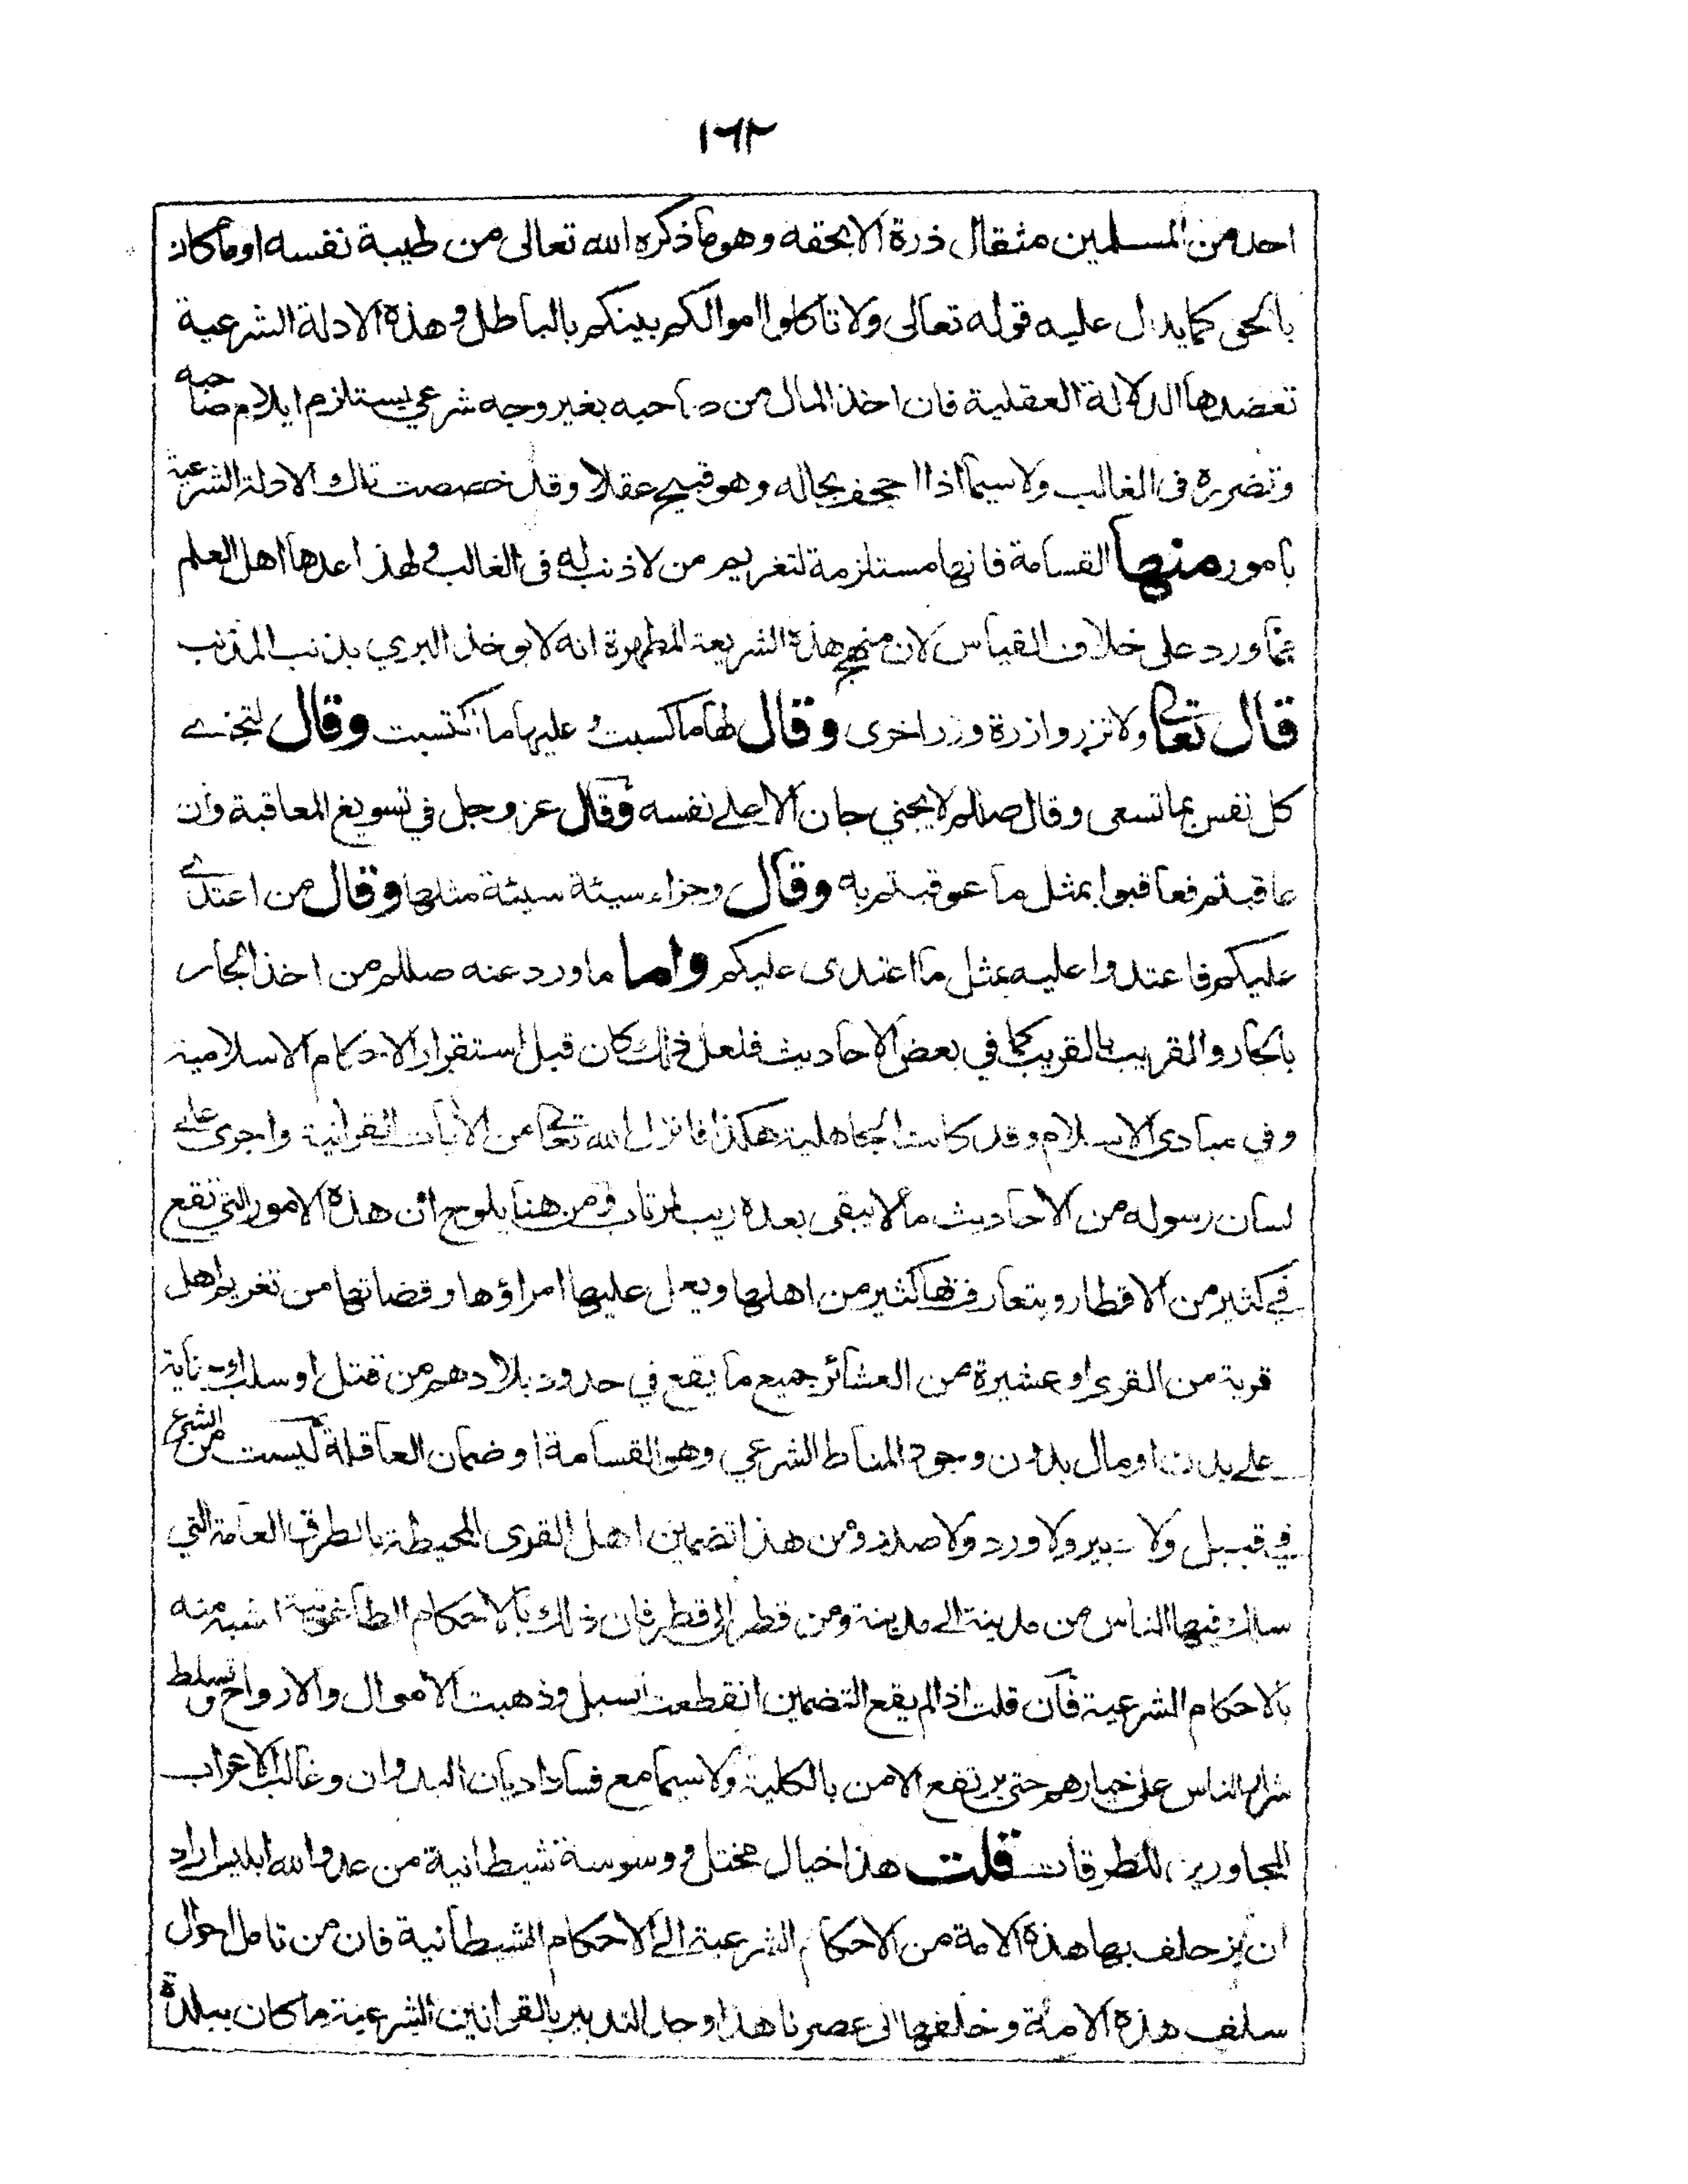 ١٦٢
احد من المسلمين مثقال ذرة الا بحقه وهو ما ذكره الله تعالى من طيبة نفسه او ما كان
بالحق كما يدل عليه قوله تعالى ولا تاكلوا اموالكم بينكم بالباطل وهذه الادلة الشرعية
تعضدها الدلالة العقلية فان اخذ المال من صاحبه بغير وجه شرعي يستلزم ايلام صاحبه
وتضرره فى الغالب ولا سيما اذا اجحف بحاله وهو قبيح عقلا وقد خصصت تلك الادلة الشرعية
بامور منها القسامة فانها مستلزمة لتغريم من لا ذنب له فى الغالب ولهذا عدها اهل العلم
مما ورد على خلاف القياس لان منهج هذه الشريعة المطهرة انه لا يوخذ البري بذنب المذنب
قال تعالى ولا تزر وازرة وزر اخرى وقال لها ما كسبت وعليها ما اكتسبت وقال لتجزى
كل نفس بما تسعى وقال صللم لا يجني جان الا على نفسه وقال عز وجل في تسويغ المعاقبة وان
عاقبتم فعاقبوا بمثل ما عوقبتم به وقال وجزاء سيئة سيئة مثلها وقال من اعتدى
عليكم فاعتدوا عليه بمثل ما اعتدى عليكم واما ما ورد عنه صللم من اخذ الجار
بالجار والقريب بالقريب كما في بعض الاحاديث فلعل ذلك كان قبل استقرار الاحكام الاسلامية
وفي مبادى الاسلام وقد كانت الجاهلية هكذا فانزل الله تعالى من الايات القرانية واجرى على
لسان رسوله من الاحاديث ما لا يبقى بعده ريب لمرتاب ومن هنا يلوح ان هذه الامور التي تقع
في كثير من الاقطار ويتعارف بها كثير من اهلها ويعمل عليها امراؤها وقضاتها من تغريم اهل
قرية من القرى او عشيرة من العشائر جميع ما يقع في حدود بلادهم من قتل او سلب او جناية
على بدن او مال بدون وجود المناط الشرعي وهو القسامة او ضمان العاقلة ليست من الشرع
في قبيل ولا دبير ولا ورد ولا صدر ومن هذا تضمين اهل القرى المحيطة بالطرق العامة التي
سلك فيها الناس من مدينة الى مدينة ومن قطر الى قطر فان ذلك بالاحكام الطاغوتية اشبه منه
بالاحكام الشرعية فان قلت اذا لم يقع التضمين انقطعت السبل وذهبت الاموال والارواح وتسلط
شرار الناس على خيارهم حتى يرتفع الامن بالكلية ولا سيما مع فساد اديان البدوان وغالب الاعراب
المجاورين للطرقات قلت هذا خيال مختل ووسوسة شيطانية من عدو الله ابليس اراد
ان يزحلف بها هذه الامة من الاحكام الشرعية الى الاحكام الشيطانية فان من تامل احوال
سلف هذه الامة وخلفها الى عصرنا هذا وجد التدبير بالقوانين الشرعية ما كان ببلدة